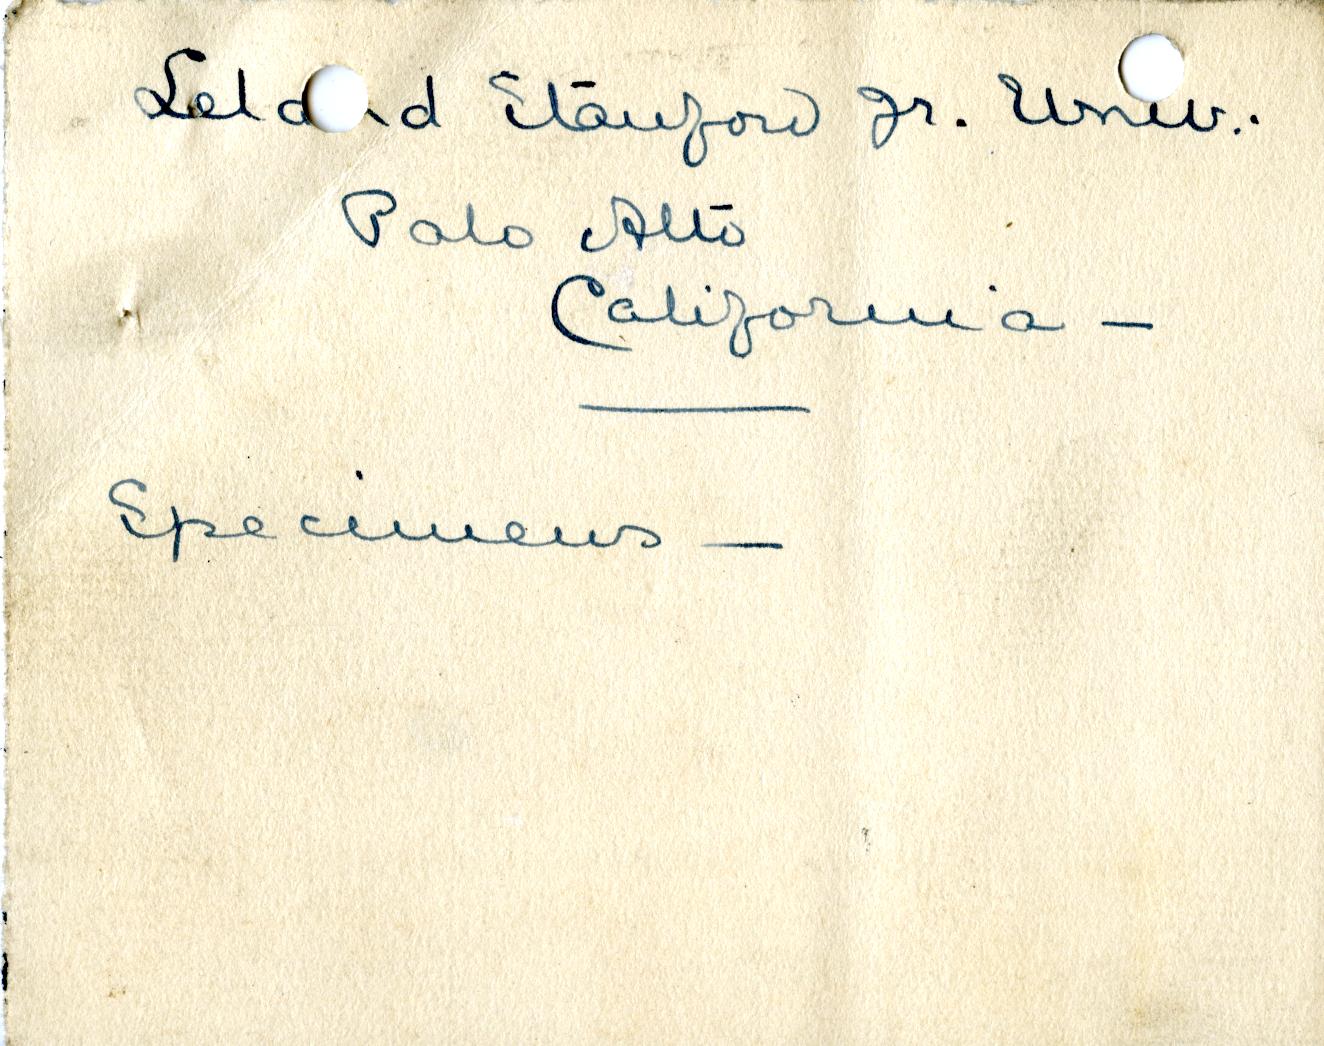 Leland Stanford Jr. Univ.
Palo Alto
California —
Specimens —